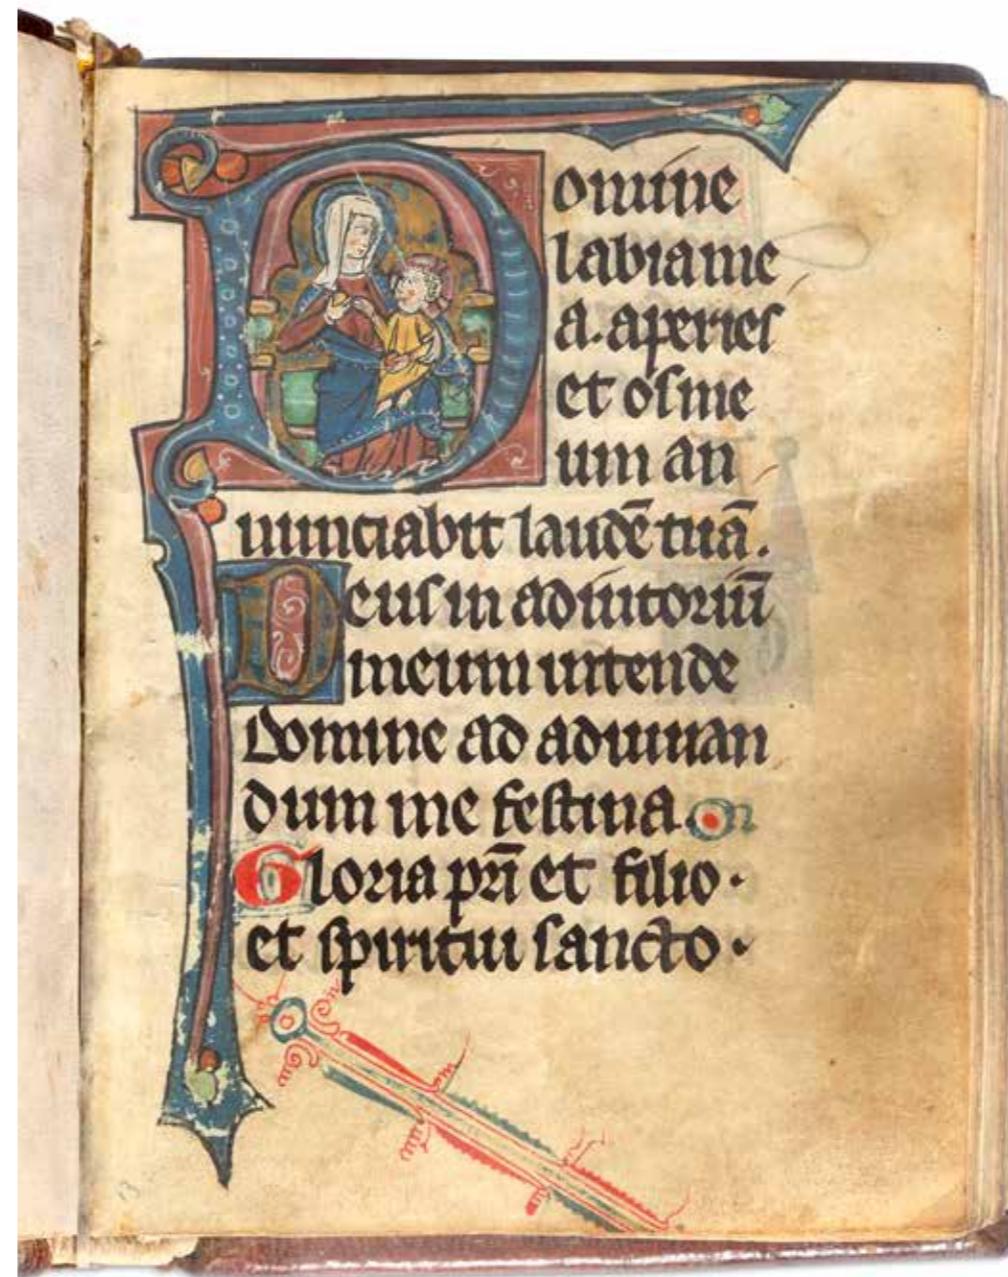 Domine
labia me
a. aperies
et os me
um an
nunciabit laudē tuā.
Deus in adiutoriū
meum intende
Domine ad adiuuan
dum me festina.
Gloria pr̄i et filio.
et spiritui sancto.